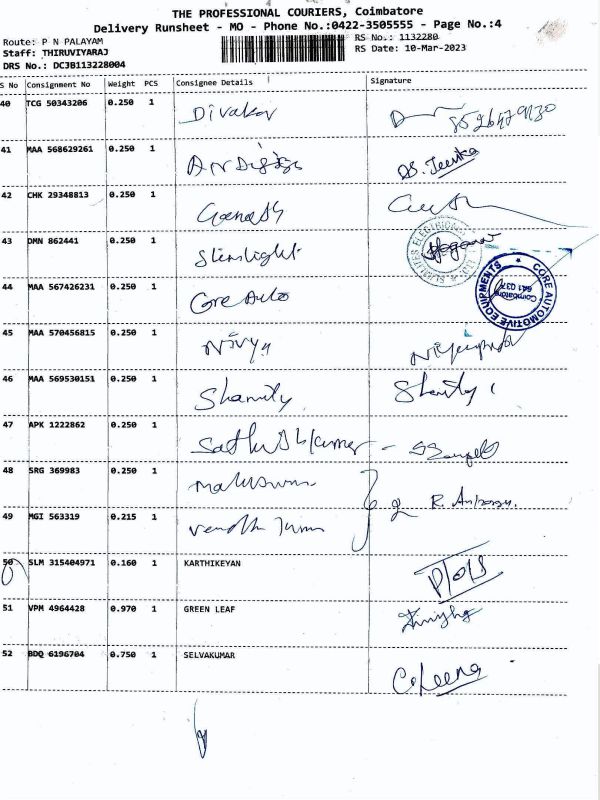 THE PROFESSIONAL COURIERS, Coimbatore
Delivery Runsheet - MO - Phone No.:0422-3505555 - Page No.:4
Route: P N PALAYAM
RS No.: 1132280
Staff: THIRUVIYARAJ
RS Date: 10-Mar-2023
DRS No.: DCJB113228004
S No Consignment No Weight PCS Consignee Details Signature
40 TCG 50343206 0.250 1 Divakar
41 MAA 568629261 0.250 1
42 CHK 29348813 0.250 1 Ganesh
43 DMN 862441 0.250 1 Slimlight
44 MAA 567426231 0.250 1 Core Auto
CORE AUTOMOTIVE EQUIPMENTS
Coimbatore
641 037
45 MAA 570456815 0.250 1 Nivya
46 MAA 569530151 0.250 1
47 APK 1222862 0.250 1 Sathish Kumar
48 SRG 369983 0.250 1
49 MGI 563319 0.215 1
50 SLM 315404971 0.160 1 KARTHIKEYAN
51 VPM 4964428 0.970 1 GREEN LEAF
52 BDQ 6196704 0.750 1 SELVAKUMAR